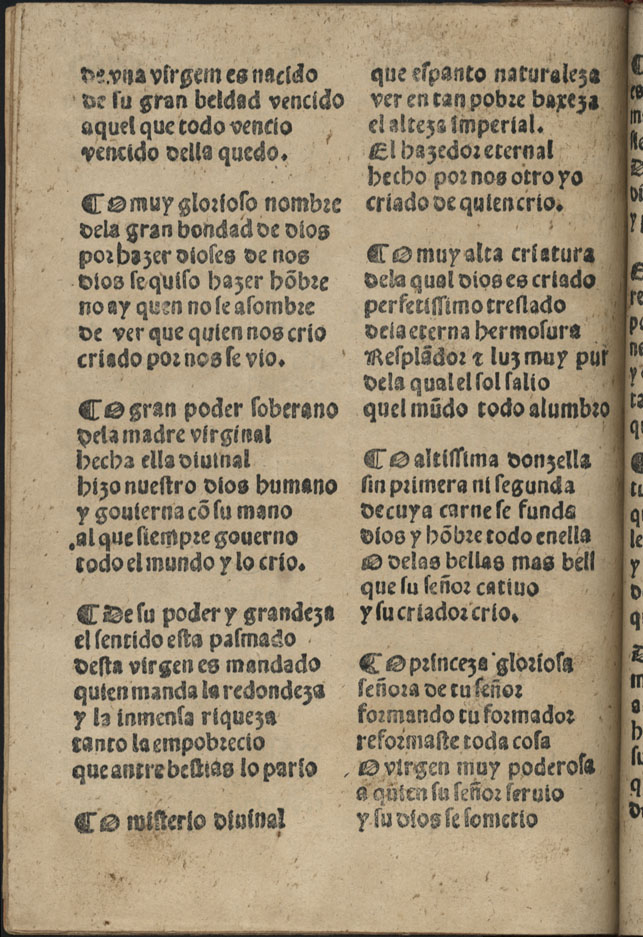 de vna virgem es nacido
de su gran beldad vencido
aquel que todo vencio
vencido della quedo.
¶ O muy glorioso nombre
dela gran bondad de dios
por hazer dioses de nos
dios se quiso hazer hõbre
no ay quen no se asombre
de ver que quien nos crio
criado por nos se vio.
¶ O gran poder soberano
dela madre virginal
hecha ella diuinal
hizo nuestro dios humano
y gouierna cõ su mano
al que siempre gouerno
todo el mundo y lo crio.
¶ De su poder y grandeza
el sentido esta pasmado
desta virgen es mandado
quien manda la redondeza
y la inmensa riqueza
tanto la empobrecio
que antre bestias lo pario
¶ O misterio diuinal
que espanto naturaleza
ver en tan pobre baxeza
el alteza imperial.
El hazedor eternal
hecho por nos otro yo
criado de quien crio.
¶ O muy alta criatura
dela qual dios es criado
perfetissimo treslado
dela eterna hermosura
Resplãdor ⁊ luz muy pur
dela qual el sol salio
quel mũdo todo alumbro
¶ O altissima donzella
sin primera ni segunda
de cuya carne se funda
dios y hõbre todo enella
O delas bellas mas bell
que su señor catiuo
y su criador crio.
¶ O princeza gloriosa
señora de tu señor
formando tu formador
reformaste toda cosa
O virgen muy poderosa
a quien su señor seruio
y su dios se sometio